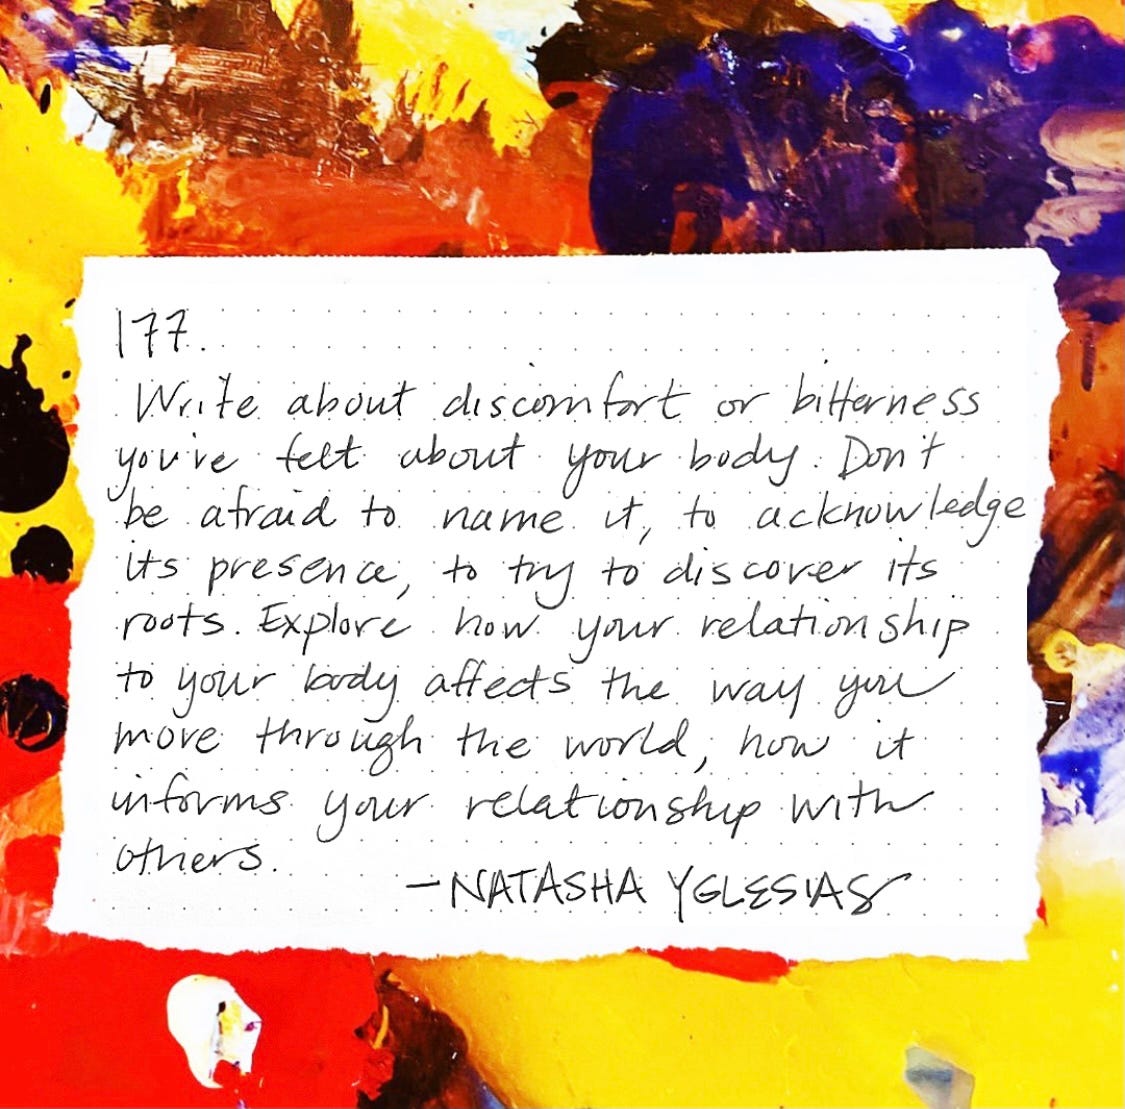 177.
Write about discomfort or bitterness
you've felt about your body. Don't
be afraid to name it, to acknowledge
its presence, to try to discover its
roots. Explore how your relationship
to your body affects the way you
move through the world, how it
informs your relationship with
others.
—NATASHA YGLESIAS